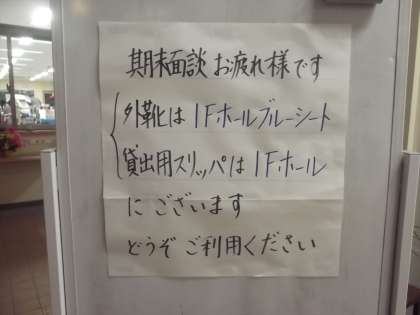 期末面談 お疲れ様です
外靴は 1Fホールブルーシート
貸出用スリッパは 1Fホール
にございます
どうぞ ご利用ください